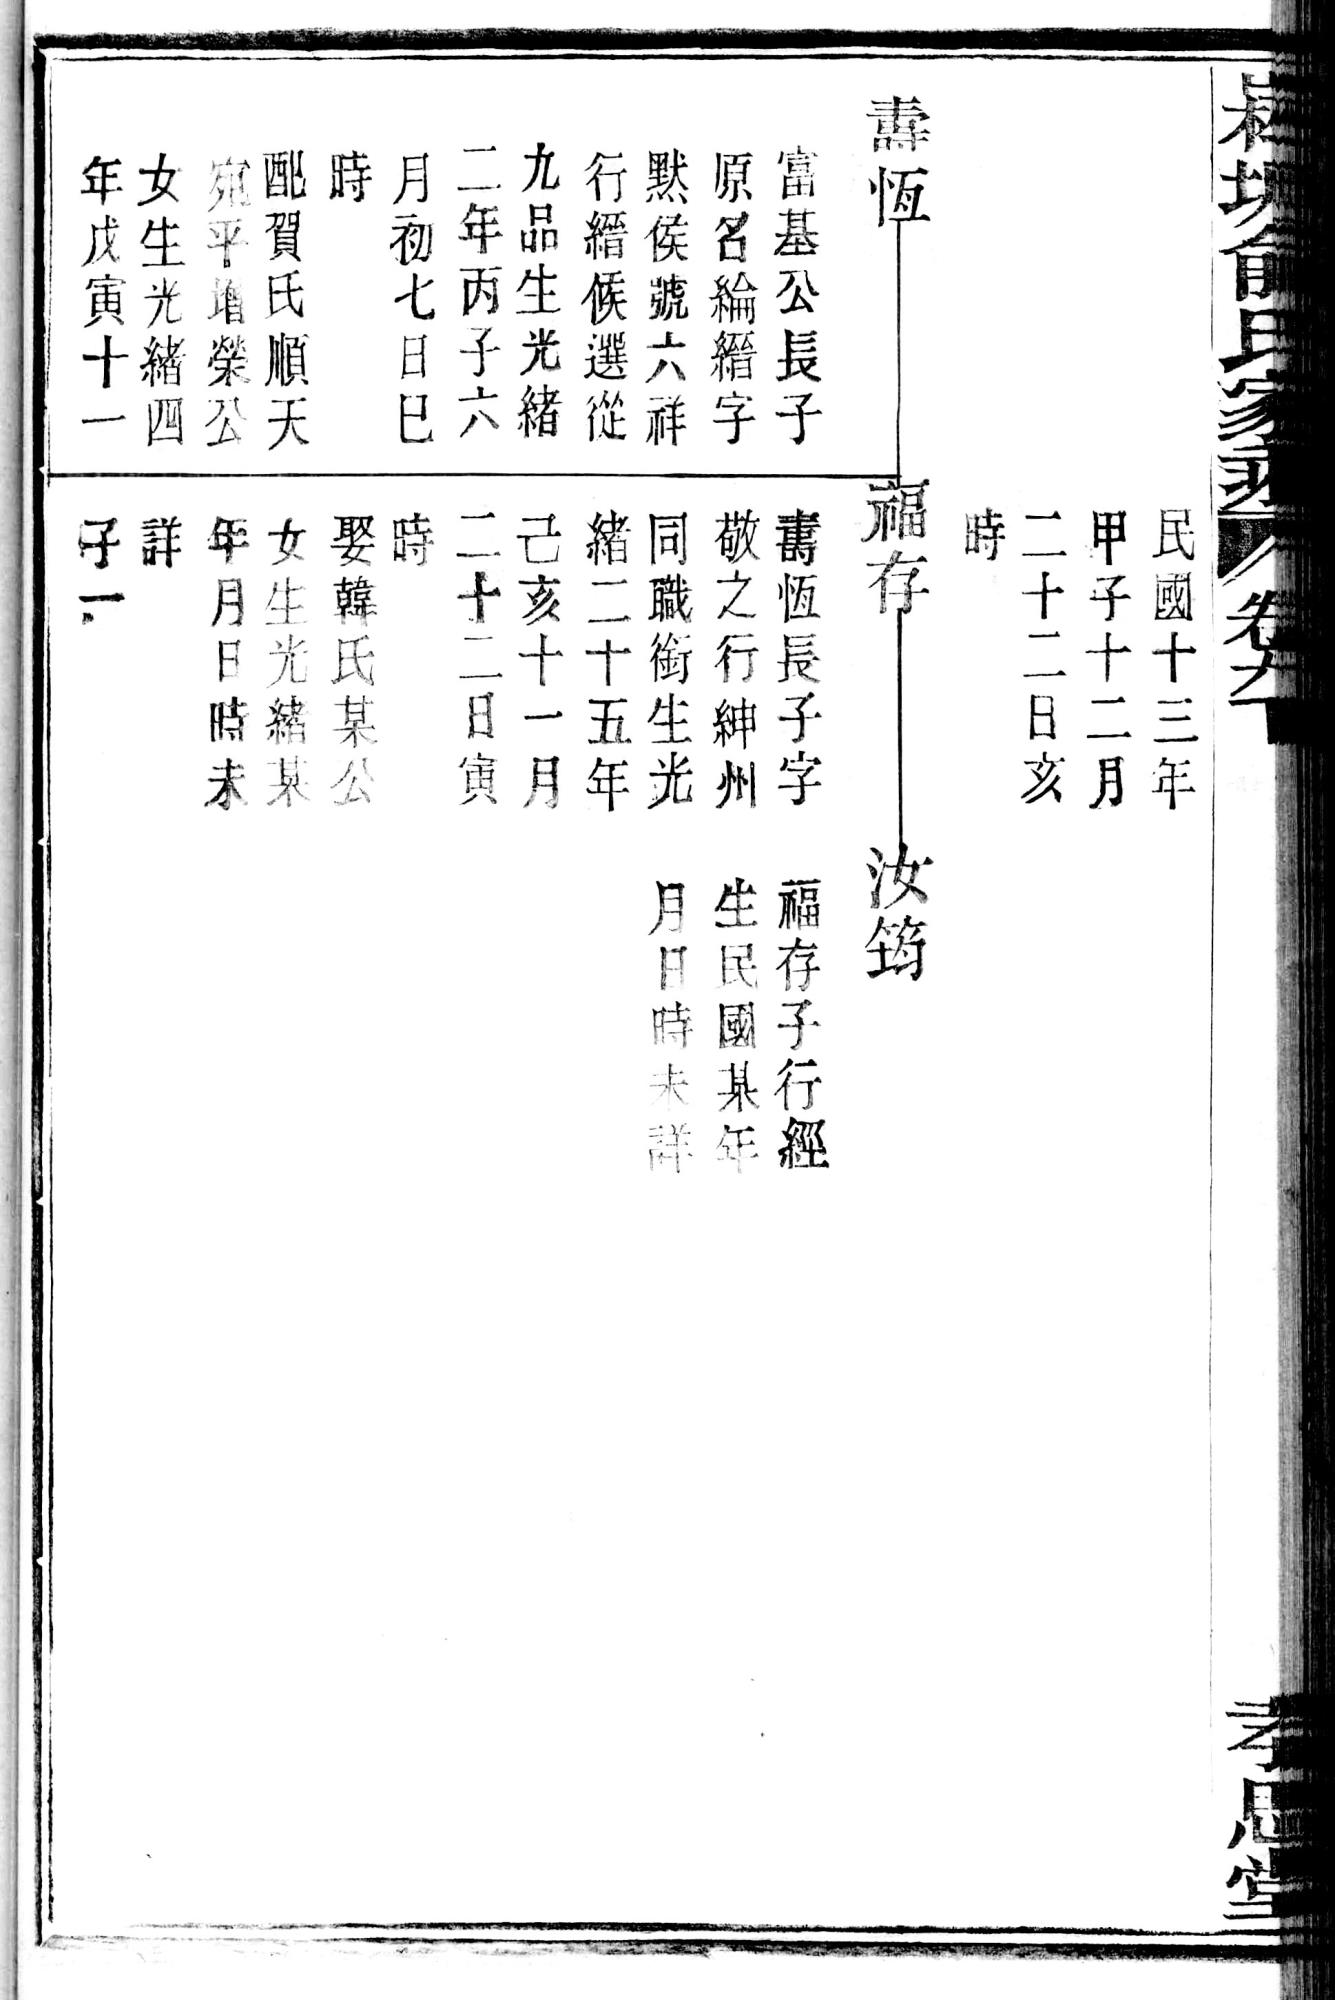 俞氏家乘
卷
孝思堂
民國十三年
甲子十二月
二十二日亥
時
壽恆
富基公長子
原名綸縉字
默侯號六祥
行縉候選從
九品生光緒
二年丙子六
月初七日巳
時
配賀氏順天
宛平增榮公
女生光緒四
年戊寅十一
福存
壽恆長子字
敬之行紳州
同職銜生光
緒二十五年
己亥十一月
二十二日寅
時
娶韓氏某公
女生光緒某
年月日時未
詳
子一
汝筠
福存子行經
生民國某年
月日時未詳